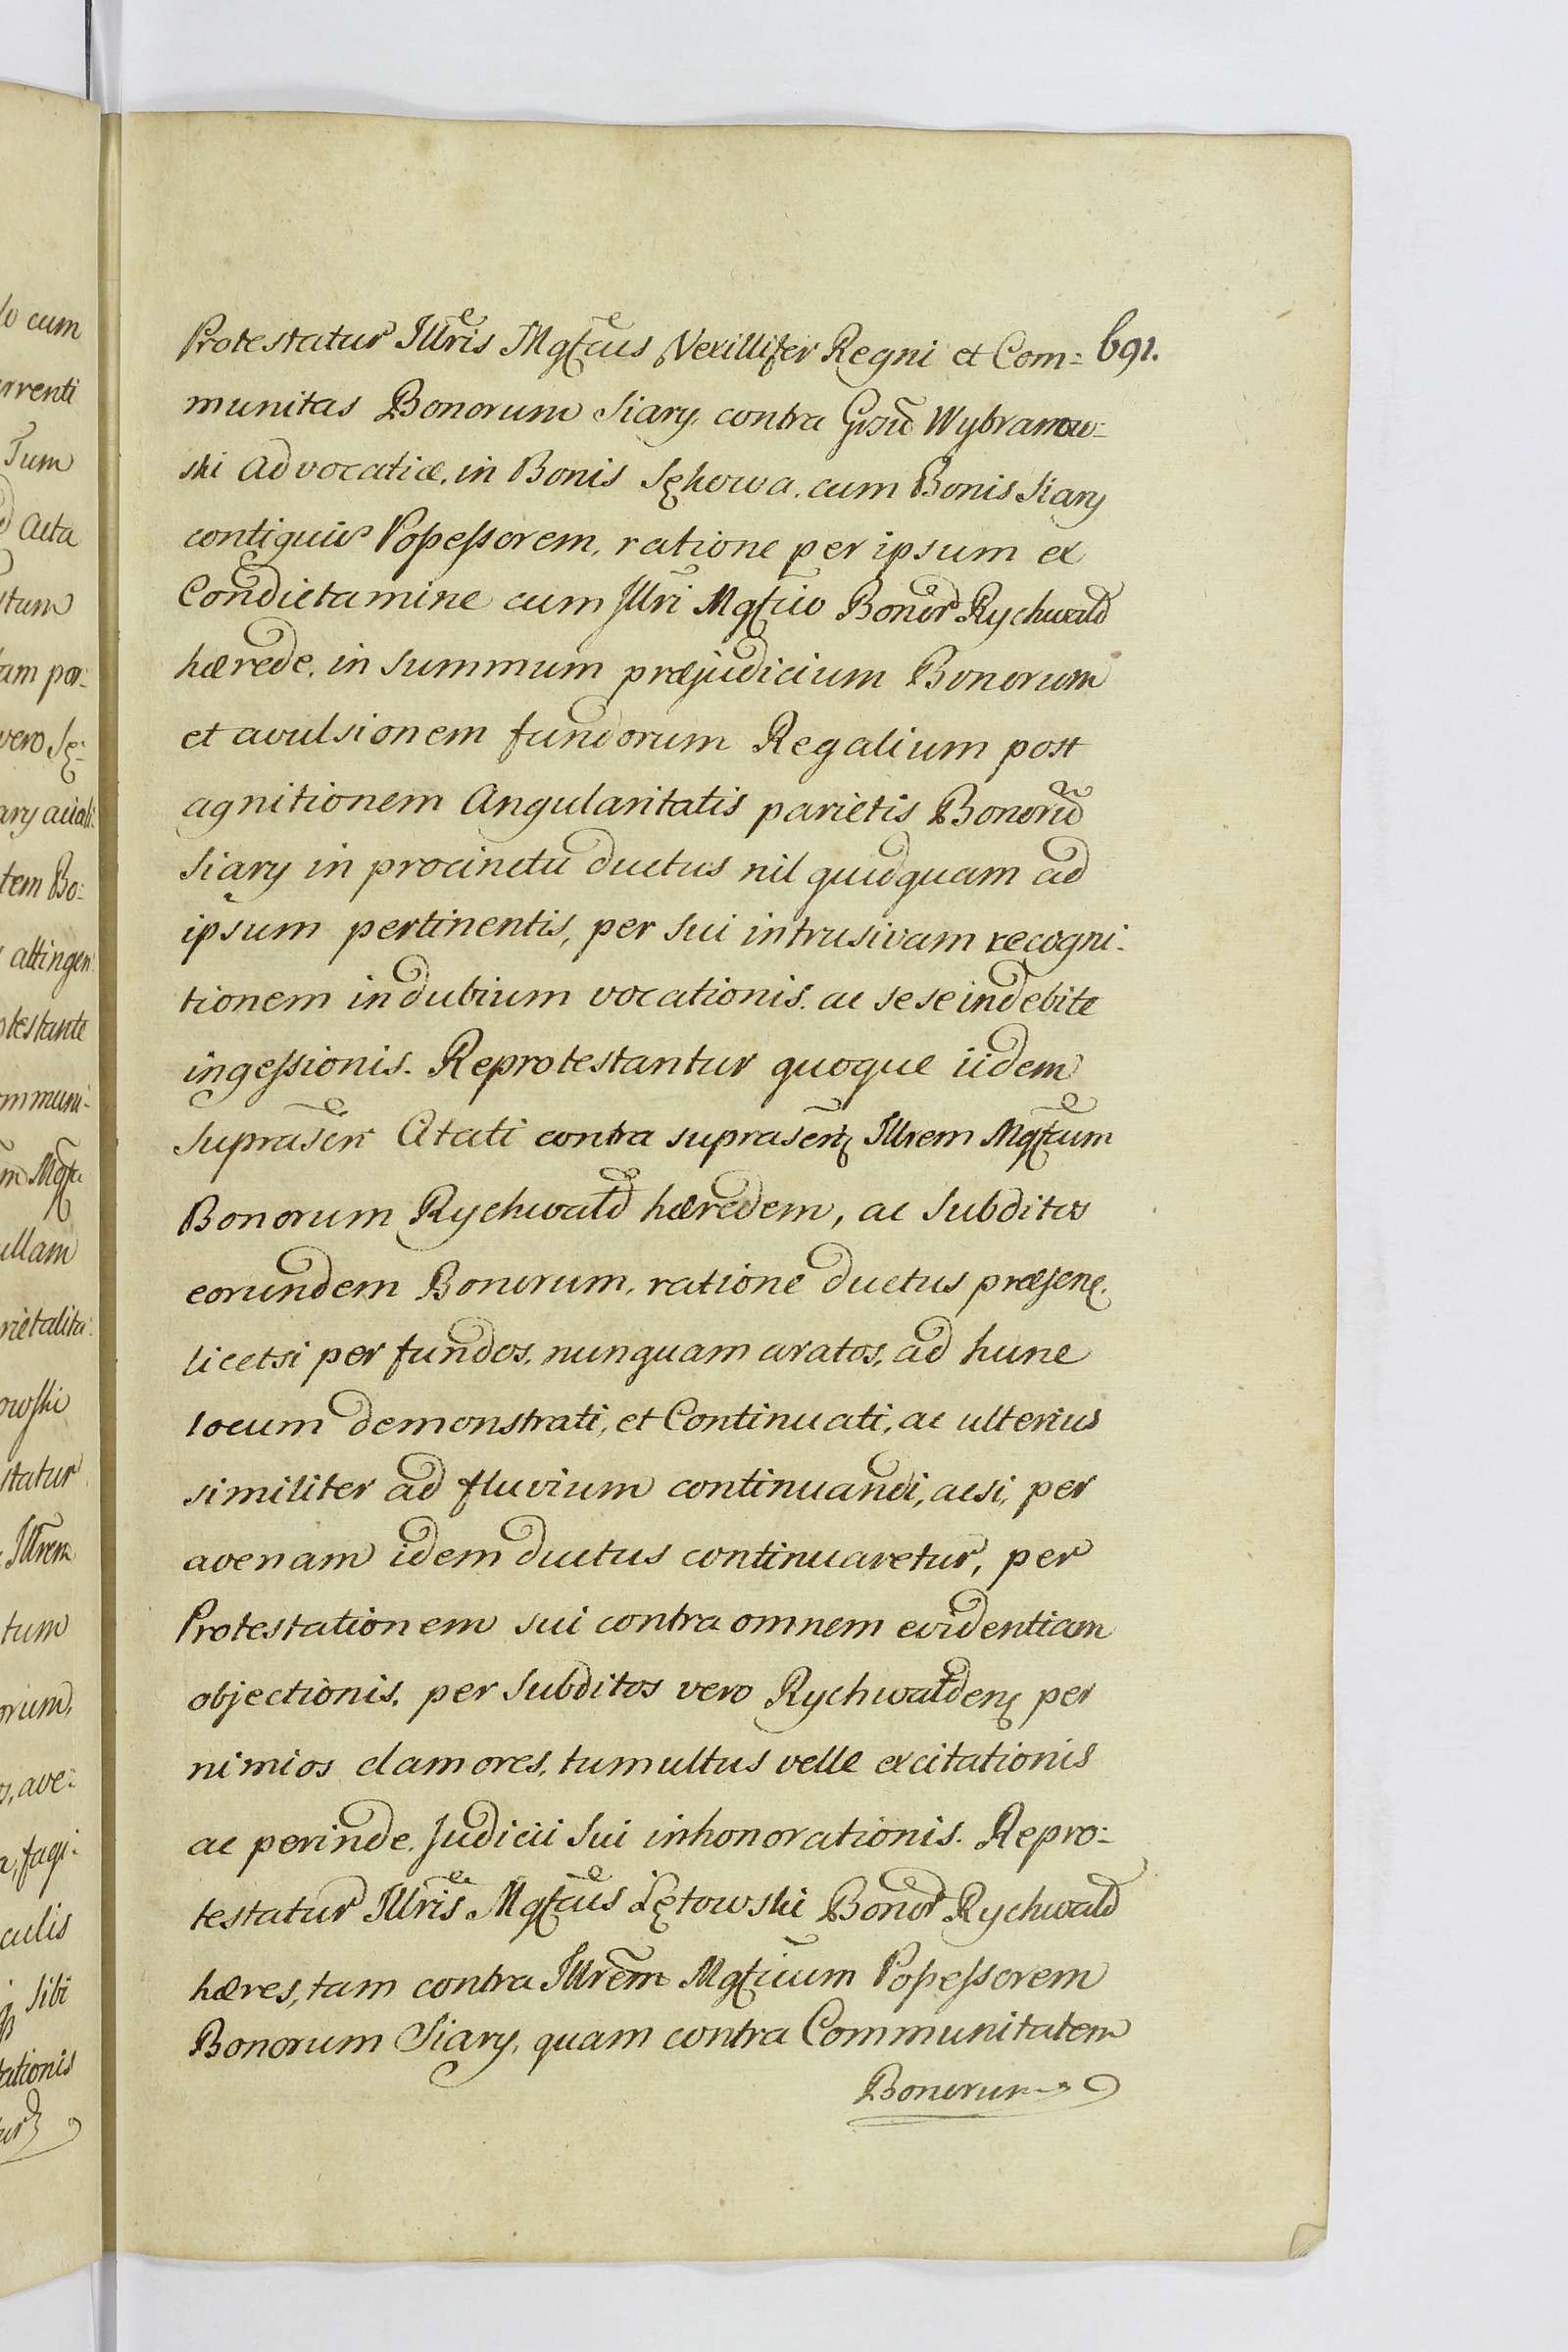 691.
Protestatur Illris Mgfcus Vexillifer Regni et Com=
munitas Bonorum Siary, contra Grsũ Wybranow=
ski Advocatiæ, in Bonis Sękowa, cum Bonis Siary
contiguis Possessorem, ratione per ipsum ex
Condictamine cum Illri Mgfico Bonor Rychwald
hærede, in summum præjudicium Bonorum
et avulsionem fundorum Regalium post
agnitionem Angularitatis parietis Bonorũ
Siary in procinctu ductus nil quidquam ad
ipsum pertinentis, per sui intrusivam recogni=
tionem in dubium vocationis, ac sese indebite
ingessionis. Reprotestantur quoque iidem
Suprascri Citati contra suprascrip Illrem Mgfcum
Bonorum Rychwałd hæredem, ac Subditos
eorundem Bonorum, ratione ductus præsenę.
licetsi per fundos, nunquam aratos, ad hunc
locum demonstrati, et Continuati, ac ulterius
similiter ad fluvium continuandi, acsi, per
avenam idem ductus continuaretur, per
Protestationem sui contra omnem evidentiam
objectionis, per Subditos vero Rychwałdenę per
nimios clamores, tumultus velle excitationis
ac perinde, Judicii Sui inhonorationis. Repro=
testatur Illris Mgfcus Łętowski Bonor Rychwałd
hæres, tam contra Illrem Mgficum Possessorem
Bonorum Siary, quam contra Communitatem
Bonorum

lo cum
rrenti
Tum
Acta
tum
am por=
vero Sę=
tem Bo=
attingen
testante
mmuni=
m Mgfc
ullam
rietalita=
owski
statur
Illrem
tum
orum,
s, ave=
a, fagi=
culis
sibi
tationis